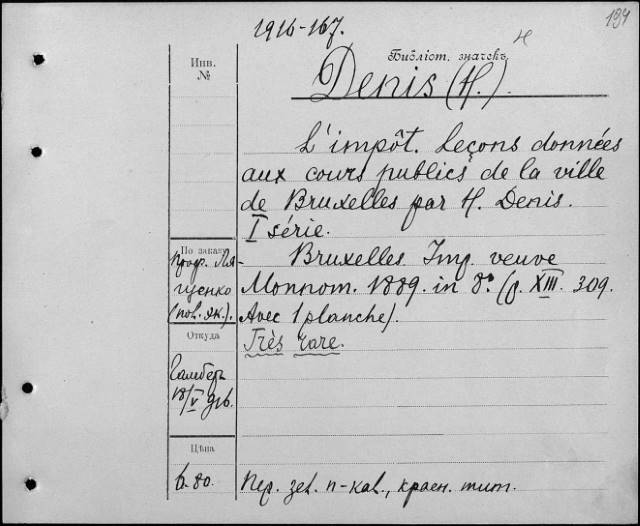 1916-167.
134
Н
Библіот. значекъ
Инв.
№
Denis (H.)
L'impôt. Leçons données
aux cours publics de la ville
de Bruxelles par H. Denis.
I série.
По заказу
Проф. Ля-
гусенко
Bruxelles. Imp. veuve
Monnom. 1889. in 8º. (p. XIII. 309.
Avec 1 planche).
Très rare.
Откуда
Гамберъ
18/V 916.
Цѣна
6.80.
Пер. зел. п-кал., красн. тит.